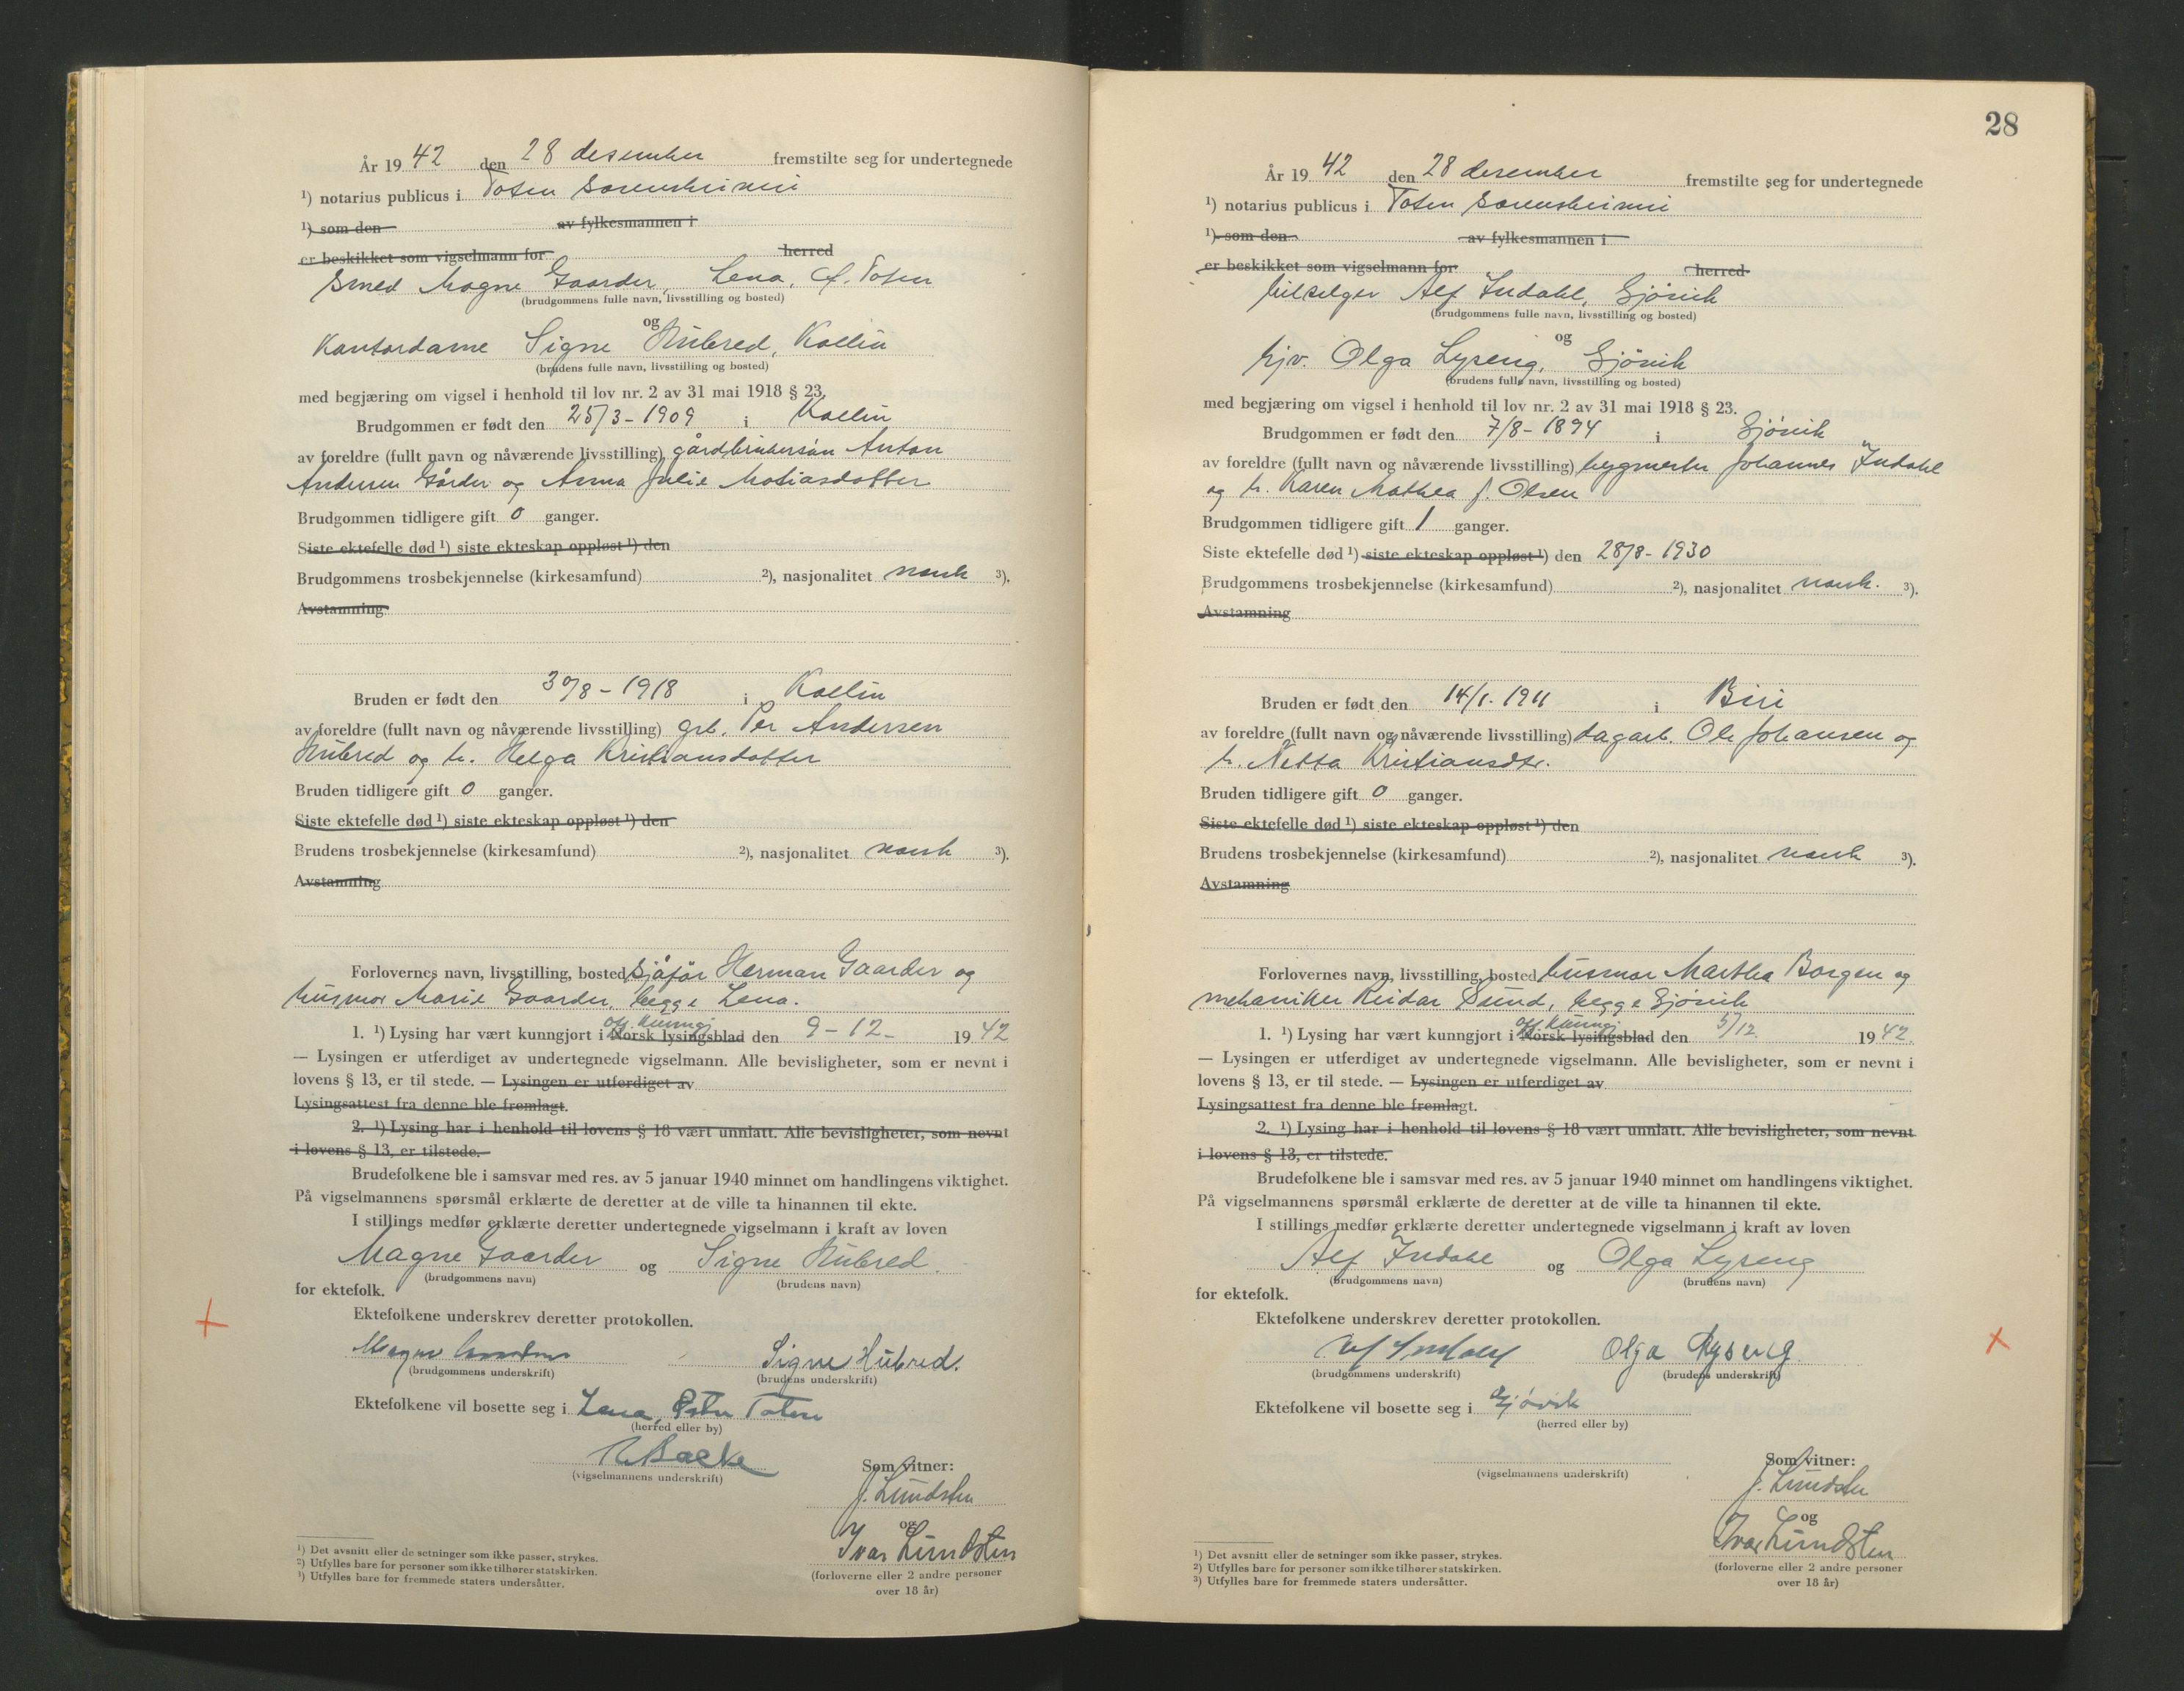 År 1942 den 28 desember fremstilte seg for undertegnede
¹) notarius publicus i Toten sorenskriveri
¹) som den av fylkesmannen i
er beskikket som vigselmann for herred
Smed Magne Gaarder, Lena, Ø. Toten
(brudgommens fulle navn, livsstilling og bosted)
og
Kontordame Signe Hubred, Kolbu
(brudens fulle navn, livsstilling og bosted)
med begjæring om vigsel i henhold til lov nr. 2 av 31 mai 1918 § 23.
Brudgommen er født den 25/3-1909 i Kolbu
av foreldre (fullt navn og nåværende livsstilling) gårdbrukersøn Anton
Andersen Gårder og Anna Julie Matiasdotter
Brudgommen tidligere gift 0 ganger.
Siste ektefelle død ¹) siste ekteskap oppløst ¹) den
Brudgommens trosbekjennelse (kirkesamfund) ²), nasjonalitet norsk ³).
Avstamning
Bruden er født den 30/8-1918 i Kolbu
av foreldre (fullt navn og nåværende livsstilling) grb. Per Andersen
Hubred og h. Helga Kristiansdotter
Bruden tidligere gift 0 ganger.
Siste ektefelle død ¹) siste ekteskap oppløst ¹) den
Brudens trosbekjennelse (kirkesamfund) ²), nasjonalitet norsk ³).
Avstamning
Forlovernes navn, livsstilling, bosted sjåfør Herman Gaarder og
husmor Marie Gaarder, begge Lena.
off. kunngj
1. ¹) Lysing har vært kunngjort i Norsk lysingsblad den 9-12- 1942
— Lysingen er utferdiget av undertegnede vigselmann. Alle bevisligheter, som er nevnt i
lovens § 13, er til stede. — Lysingen er utferdiget av
Lysingsattest fra denne ble fremlagt.
2. ¹) Lysing har i henhold til lovens § 18 vært unnlatt. Alle bevisligheter, som nevnt
i lovens § 13, er tilstede.
Brudefolkene ble i samsvar med res. av 5 januar 1940 minnet om handlingens viktighet.
På vigselmannens spørsmål erklærte de deretter at de ville ta hinannen til ekte.
I stillings medfør erklærte deretter undertegnede vigselmann i kraft av loven
Magne Gaarder og Signe Hubred.
(brudgommens navn) (brudens navn)
for ektefolk.
Ektefolkene underskrev deretter protokollen.
Magne Gaarder Signe Hubred.
(brudgommens underskrift) (brudens underskrift)
Ektefolkene vil bosette seg i Lena, Østre Toten
(herred eller by)
Bakke
(vigselmannens underskrift)
Som vitner:
J. Lundsten
og
Ivar Lundsten
(forloverne eller 2 andre personer
over 18 år)
¹) Det avsnitt eller de setninger som ikke passer, strykes.
²) Utfylles bare for personer som ikke tilhører statskirken.
³) Utfylles bare for fremmede staters undersåtter.
28
År 1942 den 28 desember fremstilte seg for undertegnede
¹) notarius publicus i Toten sorenskriveri
¹) som den av fylkesmannen i
er beskikket som vigselmann for herred
bilselger Alf Indahl, Gjövik
(brudgommens fulle navn, livsstilling og bosted)
og
hjv. Olga Lyseng, Gjövik
(brudens fulle navn, livsstilling og bosted)
med begjæring om vigsel i henhold til lov nr. 2 av 31 mai 1918 § 23.
Brudgommen er født den 7/8-1894 i Gjövik
av foreldre (fullt navn og nåværende livsstilling) bygmester Johannes Indahl
og h. Karen Mathea f. Olsen
Brudgommen tidligere gift 1 ganger.
Siste ektefelle død ¹) siste ekteskap oppløst ¹) den 28/8-1930
Brudgommens trosbekjennelse (kirkesamfund) ²), nasjonalitet norsk. ³).
Avstamning
Bruden er født den 14/1.1911 i Biri
av foreldre (fullt navn og nåværende livsstilling) dagarb. Ole Johansen og
h. Netta Kristiansdtr.
Bruden tidligere gift 0 ganger.
Siste ektefelle død ¹) siste ekteskap oppløst ¹) den
Brudens trosbekjennelse (kirkesamfund) ²), nasjonalitet norsk ³).
Avstamning
Forlovernes navn, livsstilling, bosted husmor Martha Borgen og
mekaniker Reidar Sund, begge Gjövik
off kunngj
1. ¹) Lysing har vært kunngjort i Norsk lysingsblad den 5/12. 1942.
— Lysingen er utferdiget av undertegnede vigselmann. Alle bevisligheter, som er nevnt i
lovens § 13, er til stede. — Lysingen er utferdiget av
Lysingsattest fra denne ble fremlagt.
2. ¹) Lysing har i henhold til lovens § 18 vært unnlatt. Alle bevisligheter, som nevnt
i lovens § 13, er tilstede.
Brudefolkene ble i samsvar med res. av 5 januar 1940 minnet om handlingens viktighet.
På vigselmannens spørsmål erklærte de deretter at de ville ta hinannen til ekte.
I stillings medfør erklærte deretter undertegnede vigselmann i kraft av loven
Alf Indahl og Olga Lyseng
(brudgommens navn) (brudens navn)
for ektefolk.
Ektefolkene underskrev deretter protokollen.
Alf Indahl Olga Lyseng.
(brudgommens underskrift) (brudens underskrift)
Ektefolkene vil bosette seg i Gjövik
(herred eller by)
(vigselmannens underskrift)
Som vitner:
J. Lundsten
og
Ivar Lundsten
(forloverne eller 2 andre personer
over 18 år)
¹) Det avsnitt eller de setninger som ikke passer, strykes.
²) Utfylles bare for personer som ikke tilhører statskirken.
³) Utfylles bare for fremmede staters undersåtter.